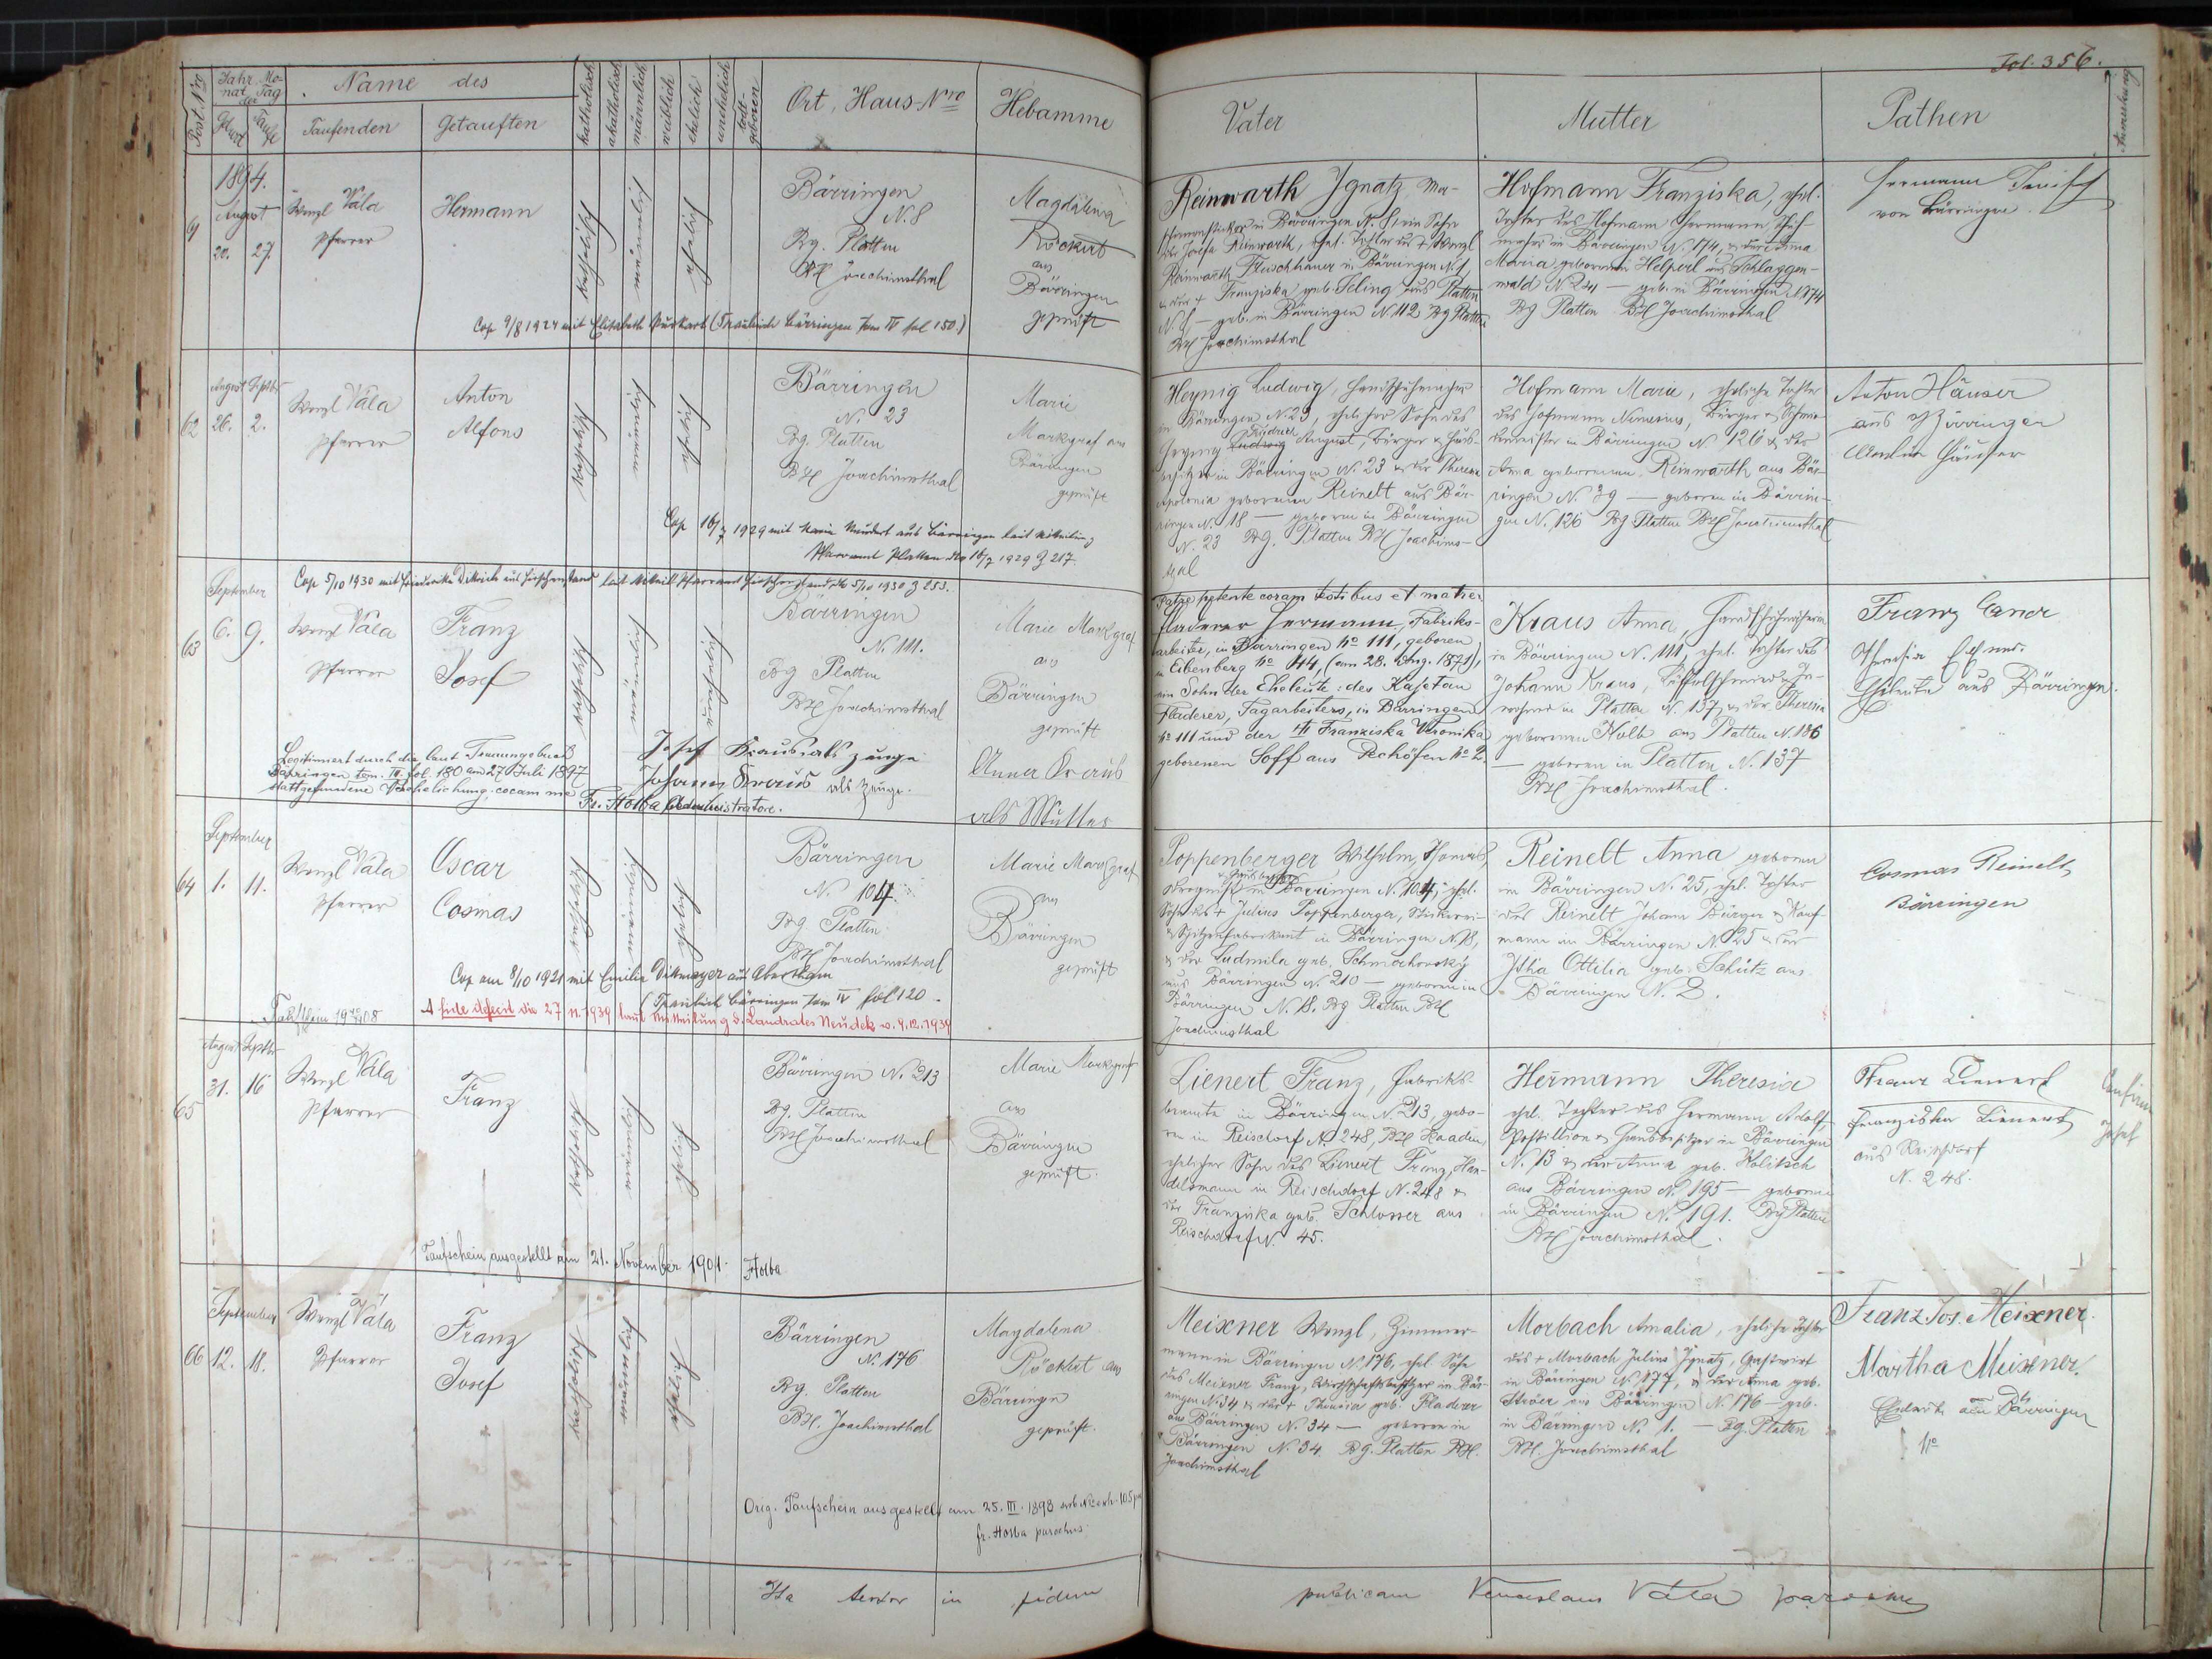 Fol. 356.
Post Nro
Jahr Mo-
nat Tag
der
Geburt
Taufe
Name des
Taufenden
Getauften
katholisch
akatholisch
männlich
weiblich
ehelich
unehelich
todt-
geboren
Ort, Haus-Nro
Hebamme
Vater
Mutter
Pathen
Anmerkung
1894.
August
20. 27.
Wenzl Vála
Pfarrer
Hermann
katholisch
männlich
ehelich
Bärringen
N. 8
Bg. Platten
BH Joachimsthal
Magdalena
Röckert
aus
Bärringen
geprüft
Cop 9/8 1924 mit Elisabeth (Traubuch Bärringen tom IV fol 150.)
Reinwarth Ignatz
in Bärringen N. 8, ein Sohn
der Josefa Reinwarth, ehel. Tochter des † Wenzl
Reinwarth Fleischhauer in Bärringen N. 1
& der † Franziska geb. Seling aus Platten
geb. in Bärringen N. 112 Bg Platten
BH Joachimsthal
Hofmann Franziska, ehel.
Tochter des Hofmann Hermann,
in Bärringen N. 174, & der Anna
Maria geborenen Helperl aus Schlaggen-
wald N. 241 — geb. in Bärringen N. 174
Bg Platten BH Joachimsthal
Hermann
von Bärringen
62
August Septbr
26. 2.
Wenzl Vála
Pfarrer
Anton
Alfons
katholisch
männlich
ehelich
Bärringen
N. 23
Bg. Platten
BH Joachimsthal
Marie
Markgraf aus
Bärringen
geprüft
Cop 16/7 1929 mit Maria aus Bärringen laut Mitteilung
Pfarramt Platten dto 16/7 1929 Z 217.
Heynig Ludwig, Handschuhmacher
in Bärringen N. 23, ehelicher Sohn des
Heynig Ludwig Friedrich August, Bürger & Haus-
besitzer in Bärringen N. 23 & der Theresia
Apolonia geborenen Reinelt aus Bär-
ringen N. 18 — geboren in Bärringen
N. 23 Bg. Platten BH Joachims-
thal
Hofmann Marie, eheliche Tochter
des Hofmann Nemesius, Bürger &
in Bärringen N 126 & der
Anna geborenen Reinwarth aus Bär-
ringen N. 39 — geboren in Bärrin-
gen N. 126 Bg. Platten BH Joachimsthal
Anton Häuser
aus Bärringen
Häuser
63
September
6. 9.
Cop 5/10 1930 mit Friederike Dittrich aus Hirschenstand laut Mitteil Pfarramt Hirschenstand dto 5/10 1930 Z 253.
Wenzl Vála
Pfarrer
Franz
Josef
katholisch
männlich
unehelich
Bärringen
N. 111.
Bg Platten
BH Joachimsthal
Marie Markgraf
aus
Bärringen
geprüft
Legitimiert durch die laut Trauungsbuch
Bärringen tom. III. fol. 180 am 27. Juli 1897
stattgefundene Verehelichung, coram me
Fr. Holba Administratore.
Josef Kraus als Zeuge
Johann Kraus als Zeuge.
Anna Kraus
als Mutter
Patre petente coram testibus et matre:
Fladerer Hermann, Fabriks-
arbeiter, in Bärringen No 111, geboren
in Eibenberg No 44, (am 28. Aug. 1871),
ein Sohn der Eheleute: des Kajetan
Fladerer, Tagarbeiters, in Bärringen
No 111 und der † Franziska Veronika
geborenen Soff aus Pechöfen No 2.
Kraus Anna, Handschuhnäherin
in Bärringen N. 111, ehel. Tochter des
Johann Kraus, Löffelschmied & In-
wohner in Platten N. 137, & der Theresia
geborenen Kolb aus Platten N. 106
— geboren in Platten N. 137
BH Joachimsthal.
Franz
Eheleute aus Bärringen.
64
September
1. 11.
Wenzl Vála
Pfarrer
Oscar
Cosmas
katholisch
männlich
ehelich
Bärringen
N. 104.
Bg Platten
BH Joachimsthal
Marie Markgraf
aus
Bärringen
geprüft
Cop am 8/10 1921 mit Emilie Ditmayer aus Abertham
(Traubuch Bärringen tom IV fol 120.
A fide defecit die 27 11. 1939 laut Mitteilung d. Landrates Neudek v. 4.12.1939
Poppenberger Wilhelm,
& Hausbesitzer in Bärringen N. 104, ehel.
Sohn des † Julius Poppenberger, Stickerei-
& Spitzenfabrikant in Bärringen N. 18,
& der Ludmila geb. Schmechovsky
aus Bärringen N. 210 — geboren in
Bärringen N. 18. Bg Platten BH
Joachimsthal
Reinelt Anna geboren
in Bärringen N. 25, ehel. Tochter
des Reinelt Johann Bürger & Kauf-
mann in Bärringen N. 25 & der
Ottilia geb. Schütz aus
Bärringen N. 2.
Cosmas Reinelt
Bärringen
65
August Septbr
31. 16
Wenzl Vála
Pfarrer
Franz
katholisch
männlich
ehelich
Bärringen N. 213
Bg. Platten
BH Joachimsthal
Marie Markgraf
aus
Bärringen
geprüft.
Taufschein ausgestellt am 21. November 1901. Holba
Lienert Franz, Fabriks-
beamte in Bärringen N. 213, gebo-
ren in Reischdorf N. 248, BH Kaaden,
ehelicher Sohn des Lienert Franz, Han-
delsmann in Reischdorf N. 248 &
der Franziska geb. Schlosser aus
Reischdorf N. 45.
Hermann Theresia
ehel. Tochter des Hermann Adolf,
Postillion & Hausbesitzer in Bärringen
N. 13 & der Anna geb. Kolitsch
aus Bärringen N. 195 — geboren
in Bärringen N. 191. Bg Platten
BH Joachimsthal.
Franz Lienert
Franziska Lienert
aus Reischdorf
N. 248.
66
September
12. 18.
Wenzl Vála
Pfarrer
Franz
Josef
katholisch
männlich
ehelich
Bärringen
N. 176
Bg. Platten
BH. Joachimsthal
Magdalena
Röckert aus
Bärringen
geprüft.
Orig. Taufschein ausgestellt am 25. III. 1898
fr. Holba parochus.
Meixner Wenzl, Zimmer-
mann in Bärringen N. 176, ehel. Sohn
des Meixner Franz, Wirthschaftsbesitzer in Bär-
ringen N. 34 & der † Theresia geb. Fladerer
aus Bärringen N. 34 — geboren in
Bärringen N. 34. Bg. Platten BH.
Joachimsthal
Morbach Amalia, eheliche Tochter
des † Morbach Julius Ignatz, Gastwirt
in Bärringen N. 177, & der Anna geb.
Ströer aus Bärringen N. 176 — geb.
in Bärringen N. 1. — Bg. Platten
BH. Joachimsthal
Franz Jos. Meixner.
Martha Meixner.
Eheleute aus Bärringen
No
Ita testor in fidem publicam Venceslaus Vála parochus